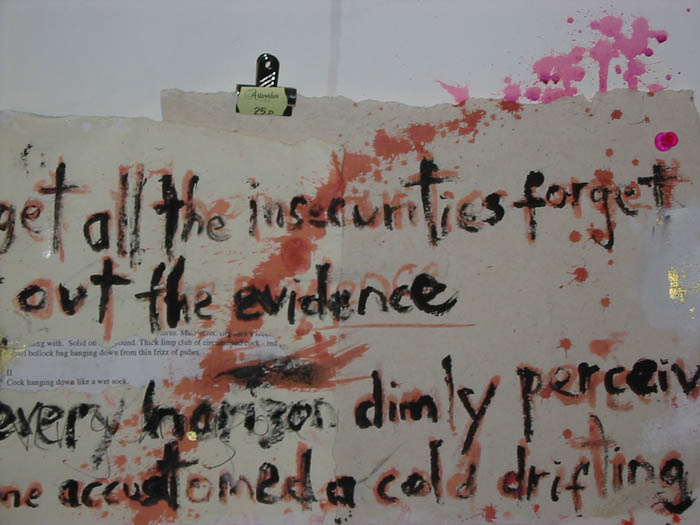 Asteroidea
25p
get all the insecurities forget
out the evidence
ing with. Solid on ound. Thick limp club of circumcised cock - red
bollock bag hanging down from thin frizz of pubes.
II
Cock hanging down like a wet sock.
every horizon dimly perceiv
me accustomed a cold drifting